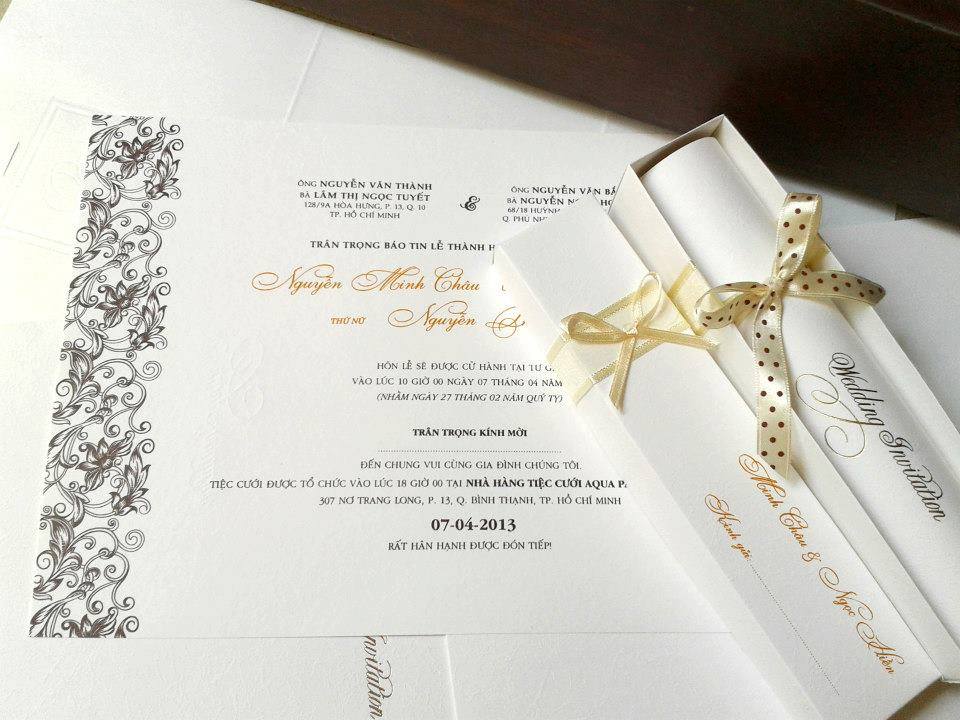 ÔNG NGUYỄN VĂN THÀNH
BÀ LÂM THỊ NGỌC TUYẾT
128/9A HÒA HƯNG, P. 13, Q. 10
TP. HỒ CHÍ MINH
&
ÔNG NGUYỄN VĂN
BÀ NGUYỄN
68/18 HUỲNH
Q. PHÚ
TRÂN TRỌNG BÁO TIN LỄ THÀNH H
Nguyễn Minh Châu
THỨ NỮ Nguyễn
HÔN LỄ SẼ ĐƯỢC CỬ HÀNH TẠI TƯ G
VÀO LÚC 10 GIỜ 00 NGÀY 07 THÁNG 04 NĂM
(NHẰM NGÀY 27 THÁNG 02 NĂM QUÝ TỴ)
TRÂN TRỌNG KÍNH MỜI
ĐẾN CHUNG VUI CÙNG GIA ĐÌNH CHÚNG TÔI.
TIỆC CƯỚI ĐƯỢC TỔ CHỨC VÀO LÚC 18 GIỜ 00 TẠI NHÀ HÀNG TIỆC CƯỚI AQUA PA
307 NƠ TRANG LONG, P. 13, Q. BÌNH THẠNH, TP. HỒ CHÍ MINH
07-04-2013
RẤT HÂN HẠNH ĐƯỢC ĐÓN TIẾP!
Wedding Invitation
Minh Châu & Ngọc Hiền
Kính gửi:
Invitation